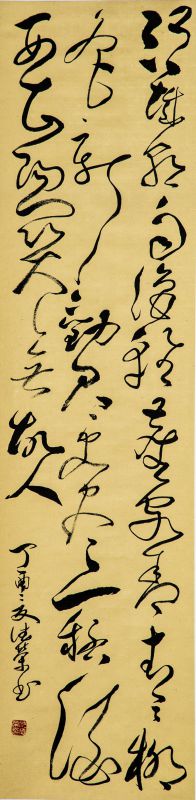 渭城朝雨浥輕塵客舍青青柳
色新勸君更盡一杯酒
西出陽關無故人
丁酉之夏